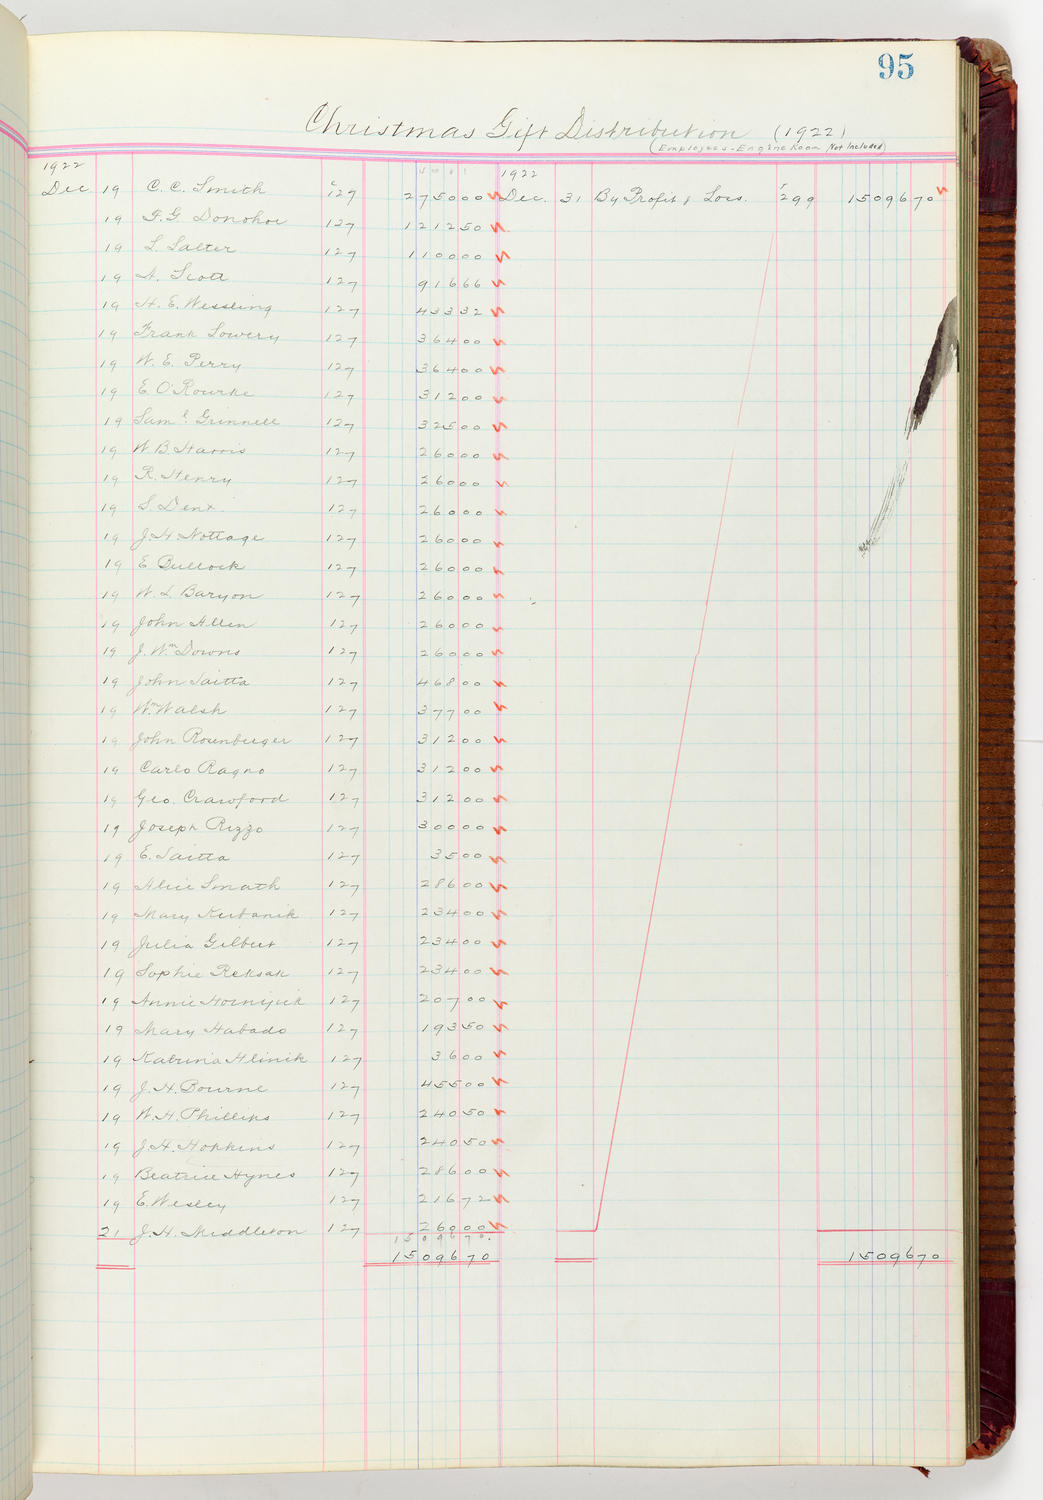 95
Christmas Gift Distribution (1922)
(Employees - Engine Room Not Included)
1922 1922
Dec. 19 C. C. Smith C127 275000 Dec. 31 By Profit & Loss. C299 1509670
19 F. G. Donohoe 127 121250
19 L. Salter 127 110000
19 A. Scott 127 91666
19 H. E. Wessling 127 43332
19 Frank Lowery 127 36400
19 W. E. Perry 127 36400
19 E. O'Rourke 127 31200
19 Saml. Grinnell 127 32500
19 W. B. Harris 127 26000
19 R. Henry 127 26000
19 S. Dent. 127 26000
19 J. H. Nottage 127 26000
19 E. Bullock 127 26000
19 W. L. Baryon 127 26000
19 John Allen 127 26000
19 J. Wm Downs 127 26000
19 John Saitta 127 46800
19 Wm Walsh 127 37700
19 John Rosenberger 127 31200
19 Carlo Ragno 127 31200
19 Geo. Crawford 127 31200
19 Joseph Rizzo 127 30000
19 E. Saitta 127 3500
19 Alice Smath 127 28600
19 Mary Kubanik 127 23400
19 Julia Gilbert 127 23400
19 Sophie Reksak 127 23400
19 Annie 127 20700
19 Mary Habado 127 19350
19 Katrina Hlinik 127 3600
19 J. H. Bourne 127 45500
19 W. H. Phillips 127 24050
19 J. H. Hopkins 127 24050
19 Beatrice Hynes 127 28600
19 E. Wesley 127 21672
21 J. H. Middleton 127 26000
1509670.
1509670 1509670